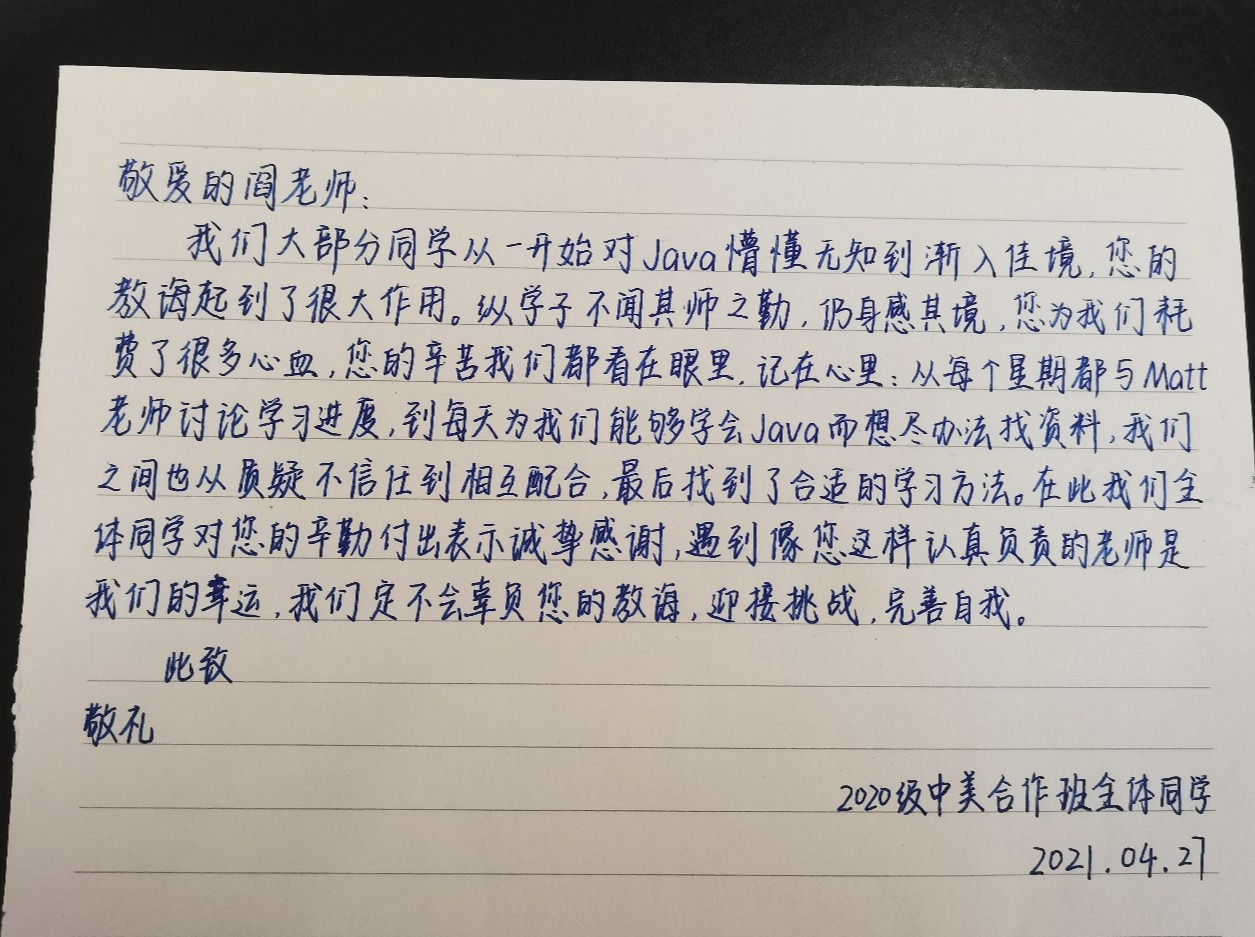 敬爱的阎老师:
我们大部分同学从一开始对Java懵懂无知到渐入佳境,您的
教诲起到了很大作用。纵学子不闻其师之勤,仍身感其境,您为我们耗
费了很多心血,您的辛苦我们都看在眼里,记在心里:从每个星期都与Matt
老师讨论学习进度,到每天为我们能够学会Java而想尽办法找资料,我们
之间也从质疑不信任到相互配合,最后找到了合适的学习方法。在此我们全
体同学对您的辛勤付出表示诚挚感谢,遇到像您这样认真负责的老师是
我们的幸运,我们定不会辜负您的教诲,迎接挑战,完善自我。
此致
敬礼
2020级中美合作班全体同学
2021.04.27